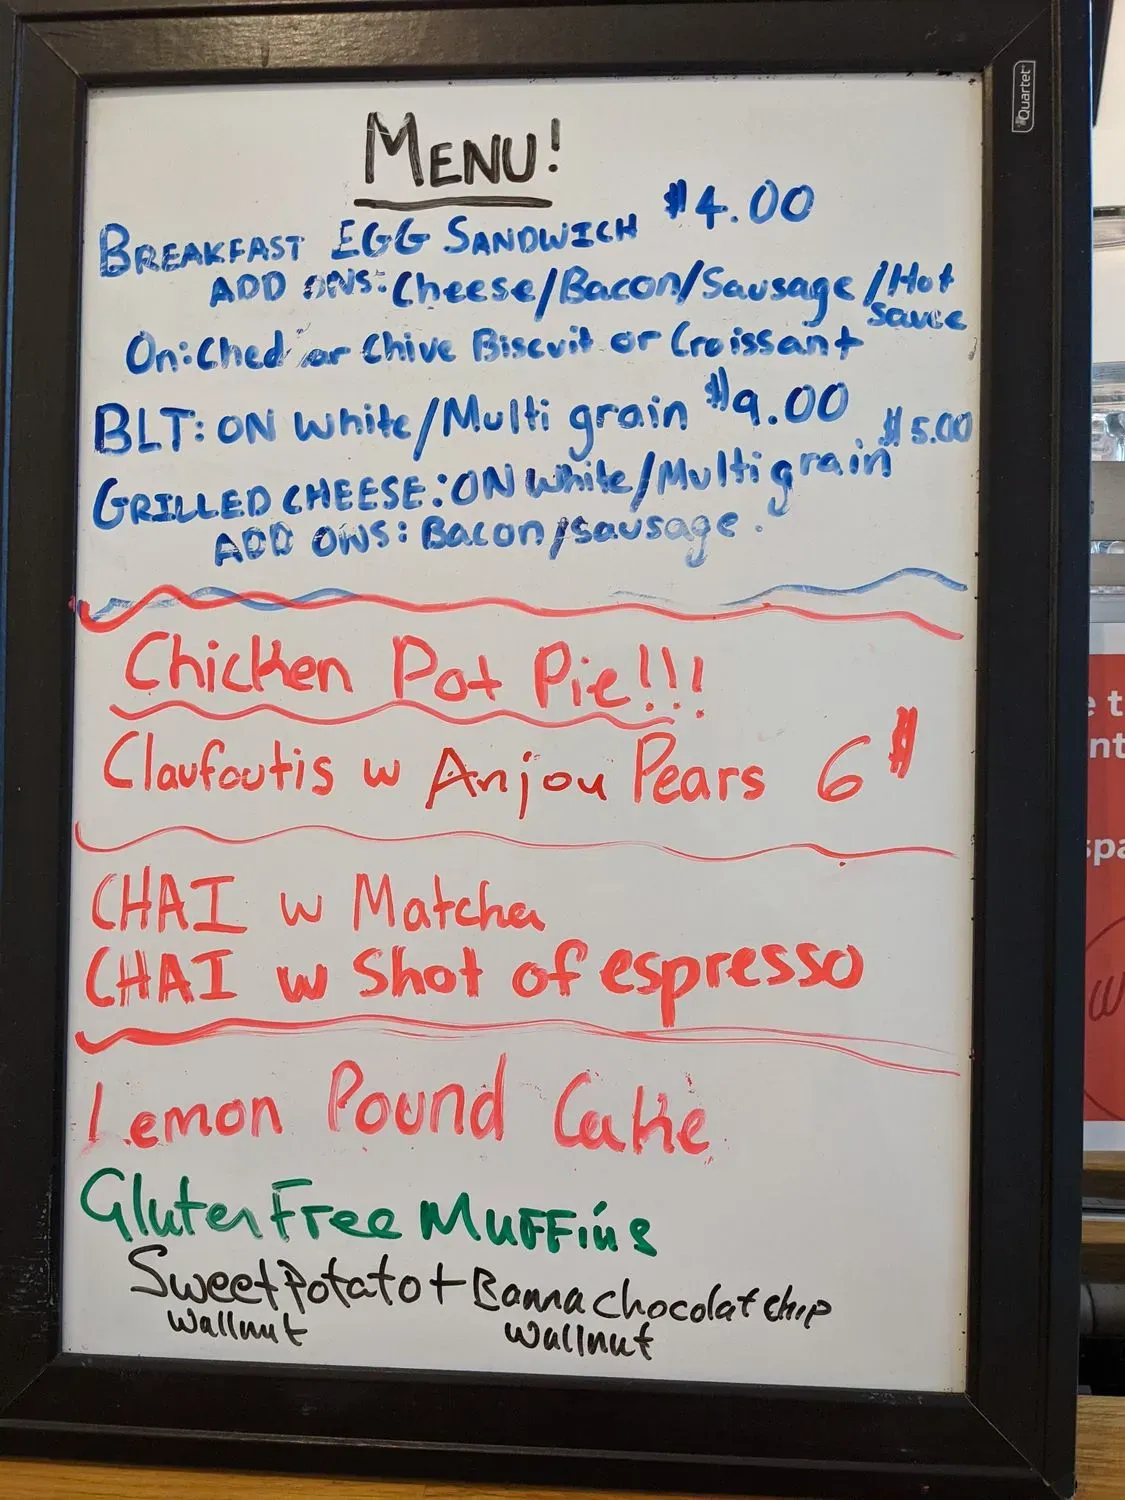 Quartet
MENU!
BREAKFAST EGG SANDWICH $4.00
ADD ONS: Cheese/Bacon/Sausage/Hot
sauce
On: Ched or Chive Biscuit or Croissant
BLT: ON White/Multi grain $9.00
GRILLED CHEESE: ON White/Multigrain $5.00
ADD ONS: Bacon/sausage.
Chicken Pot Pie!!!
Claufoutis w Anjou Pears 6$
CHAI w Matcha
CHAI w Shot of espresso
Lemon Pound Cake
Gluten Free MUFFins
Sweet Potato + Banna chocolat chip
Wallnut Wallnut